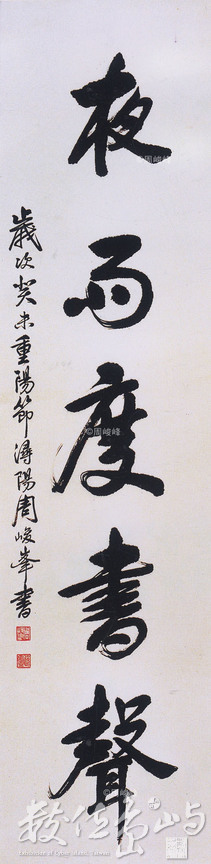 夜雨度書聲
歲次癸未重陽節潯陽周峻峯書
©周峻峰
©周峻峰
©周峻峰
數位島嶼